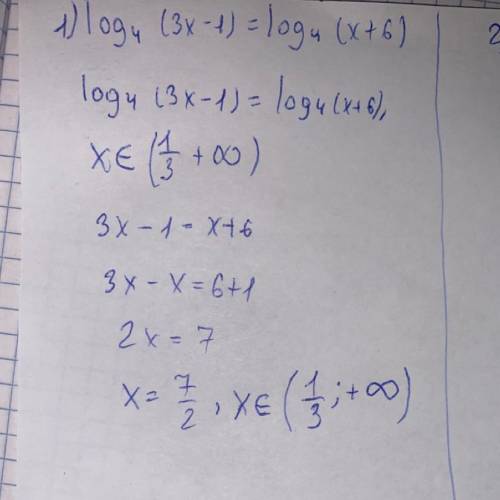 1) log₄ (3x-1) = log₄ (x+6)
log₄ (3x-1) = log₄ (x+6),
x∈ (1/3 +∞)
3x - 1 = x+6
3x - x = 6+1
2x = 7
x = 7/2, x∈ (1/3; +∞)
2